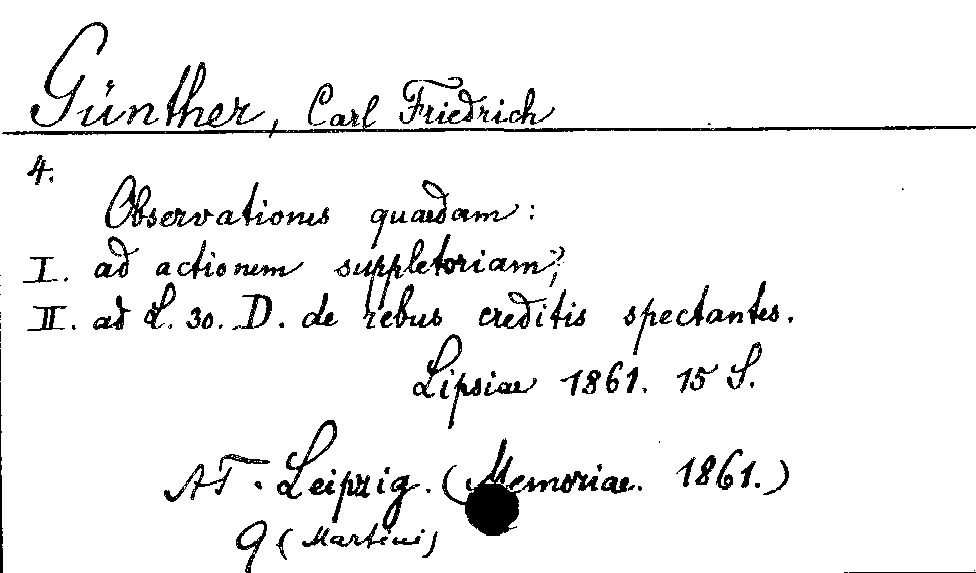 Günther, Carl Friedrich
4.
Observationes quaedam:
I. ad actionem suppletoriam;
II. ad L. 30. D. de rebus creditis spectantes.
Lipsiae 1861. 15 S.
AT. Leipzig. (Memoriae. 1861.)
9 (Martini)